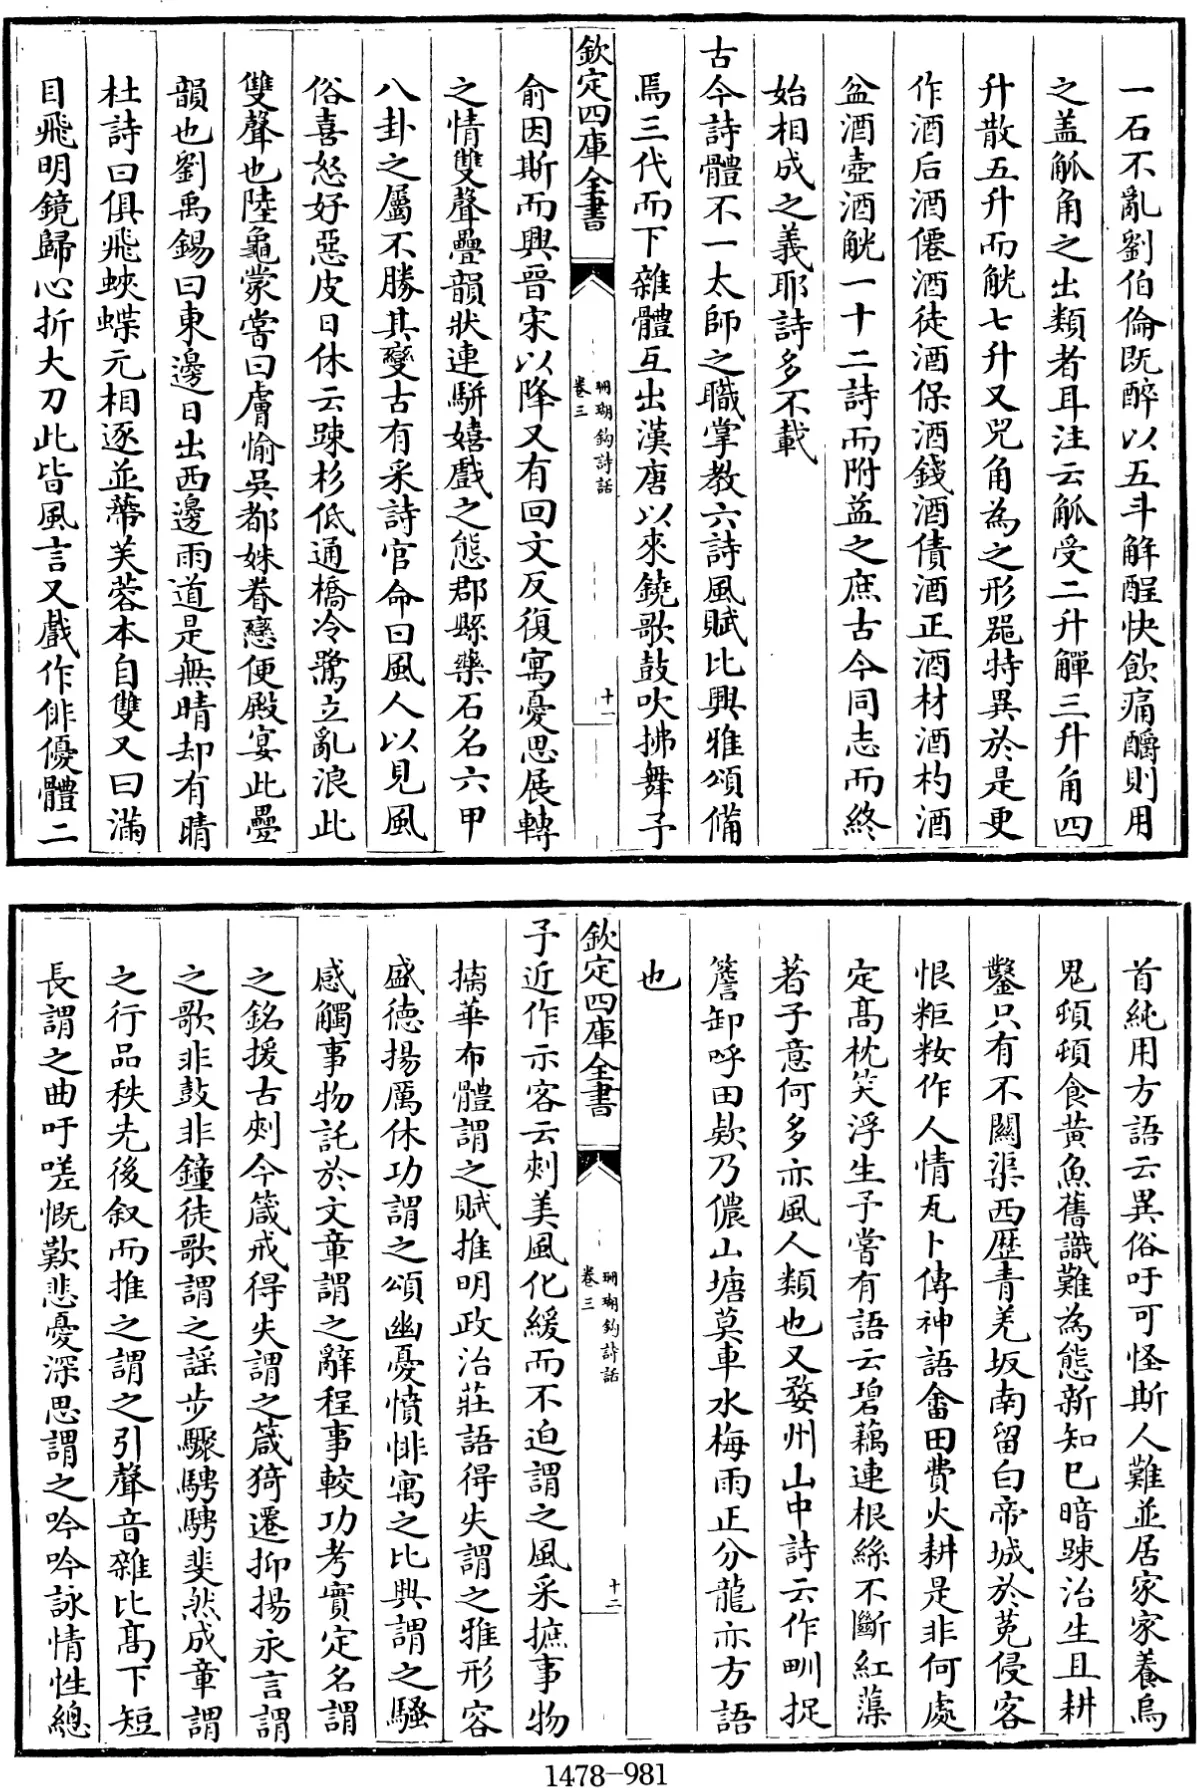 一石不亂劉伯倫既醉以五斗解酲快飲痛釂則用
之盖觚角之出類者耳注云觚受二升觶三升角四
升散五升而觥七升又兕角為之形噐特異於是更
作酒后酒僊酒徒酒保酒錢酒債酒正酒材酒杓酒
盆酒壺酒觥一十二詩而附益之庶古今同志而終
始相成之義耶詩多不載
古今詩體不一太師之職掌教六詩風賦比興雅頌備
焉三代而下雜體互出漢唐以來鐃歌鼓吹拂舞予
欽定四庫全書
珊瑚鈎詩話
卷三
十一
俞因斯而興晉宋以降又有回文反復寓憂思展轉
之情雙聲疊韻狀連駢嬉戲之態郡縣藥石名六甲
八卦之屬不勝其變古有采詩官命曰風人以見風
俗喜怒好惡皮日休云踈杉低通橋冷鷺立亂浪此
雙聲也陸龜蒙嘗曰膚愉吳都姝眷戀便殿宴此疊
韻也劉禹錫曰東邊日出西邊雨道是無晴却有晴
杜詩曰俱飛蛺蝶元相逐並蔕芙蓉本自雙又曰滿
目飛明鏡歸心折大刀此皆風言又戲作俳優體二
首純用方語云異俗吁可怪斯人難並居家家養烏
鬼頓頓食黃魚舊識難為態新知已暗踈治生且耕
鑿只有不關渠西歷青羌坂南留白帝城於菟侵客
恨粔籹作人情瓦卜傳神語畬田費火耕是非何處
定髙枕笑浮生予嘗有語云碧藕連根絲不斷紅蕖
著子意何多亦風人類也又婺州山中詩云作甽捉
簷卸呼田欵乃儂山塘莫車水梅雨正分龍亦方語
也
欽定四庫全書
珊瑚鈎詩話
卷三
十二
予近作示客云刺美風化緩而不迫謂之風采摭事物
摛華布體謂之賦推明政治莊語得失謂之雅形容
盛徳揚厲休功謂之頌幽憂憤悱寓之比興謂之騷
感觸事物託於文章謂之辭程事較功考實定名謂
之銘援古刺今箴戒得失謂之箴猗遷抑揚永言謂
之歌非鼓非鐘徒歌謂之謡步驟馳騁斐然成章謂
之行品秩先後叙而推之謂之引聲音雜比髙下短
長謂之曲吁嗟慨歎悲憂深思謂之吟吟詠情性總
1478-981